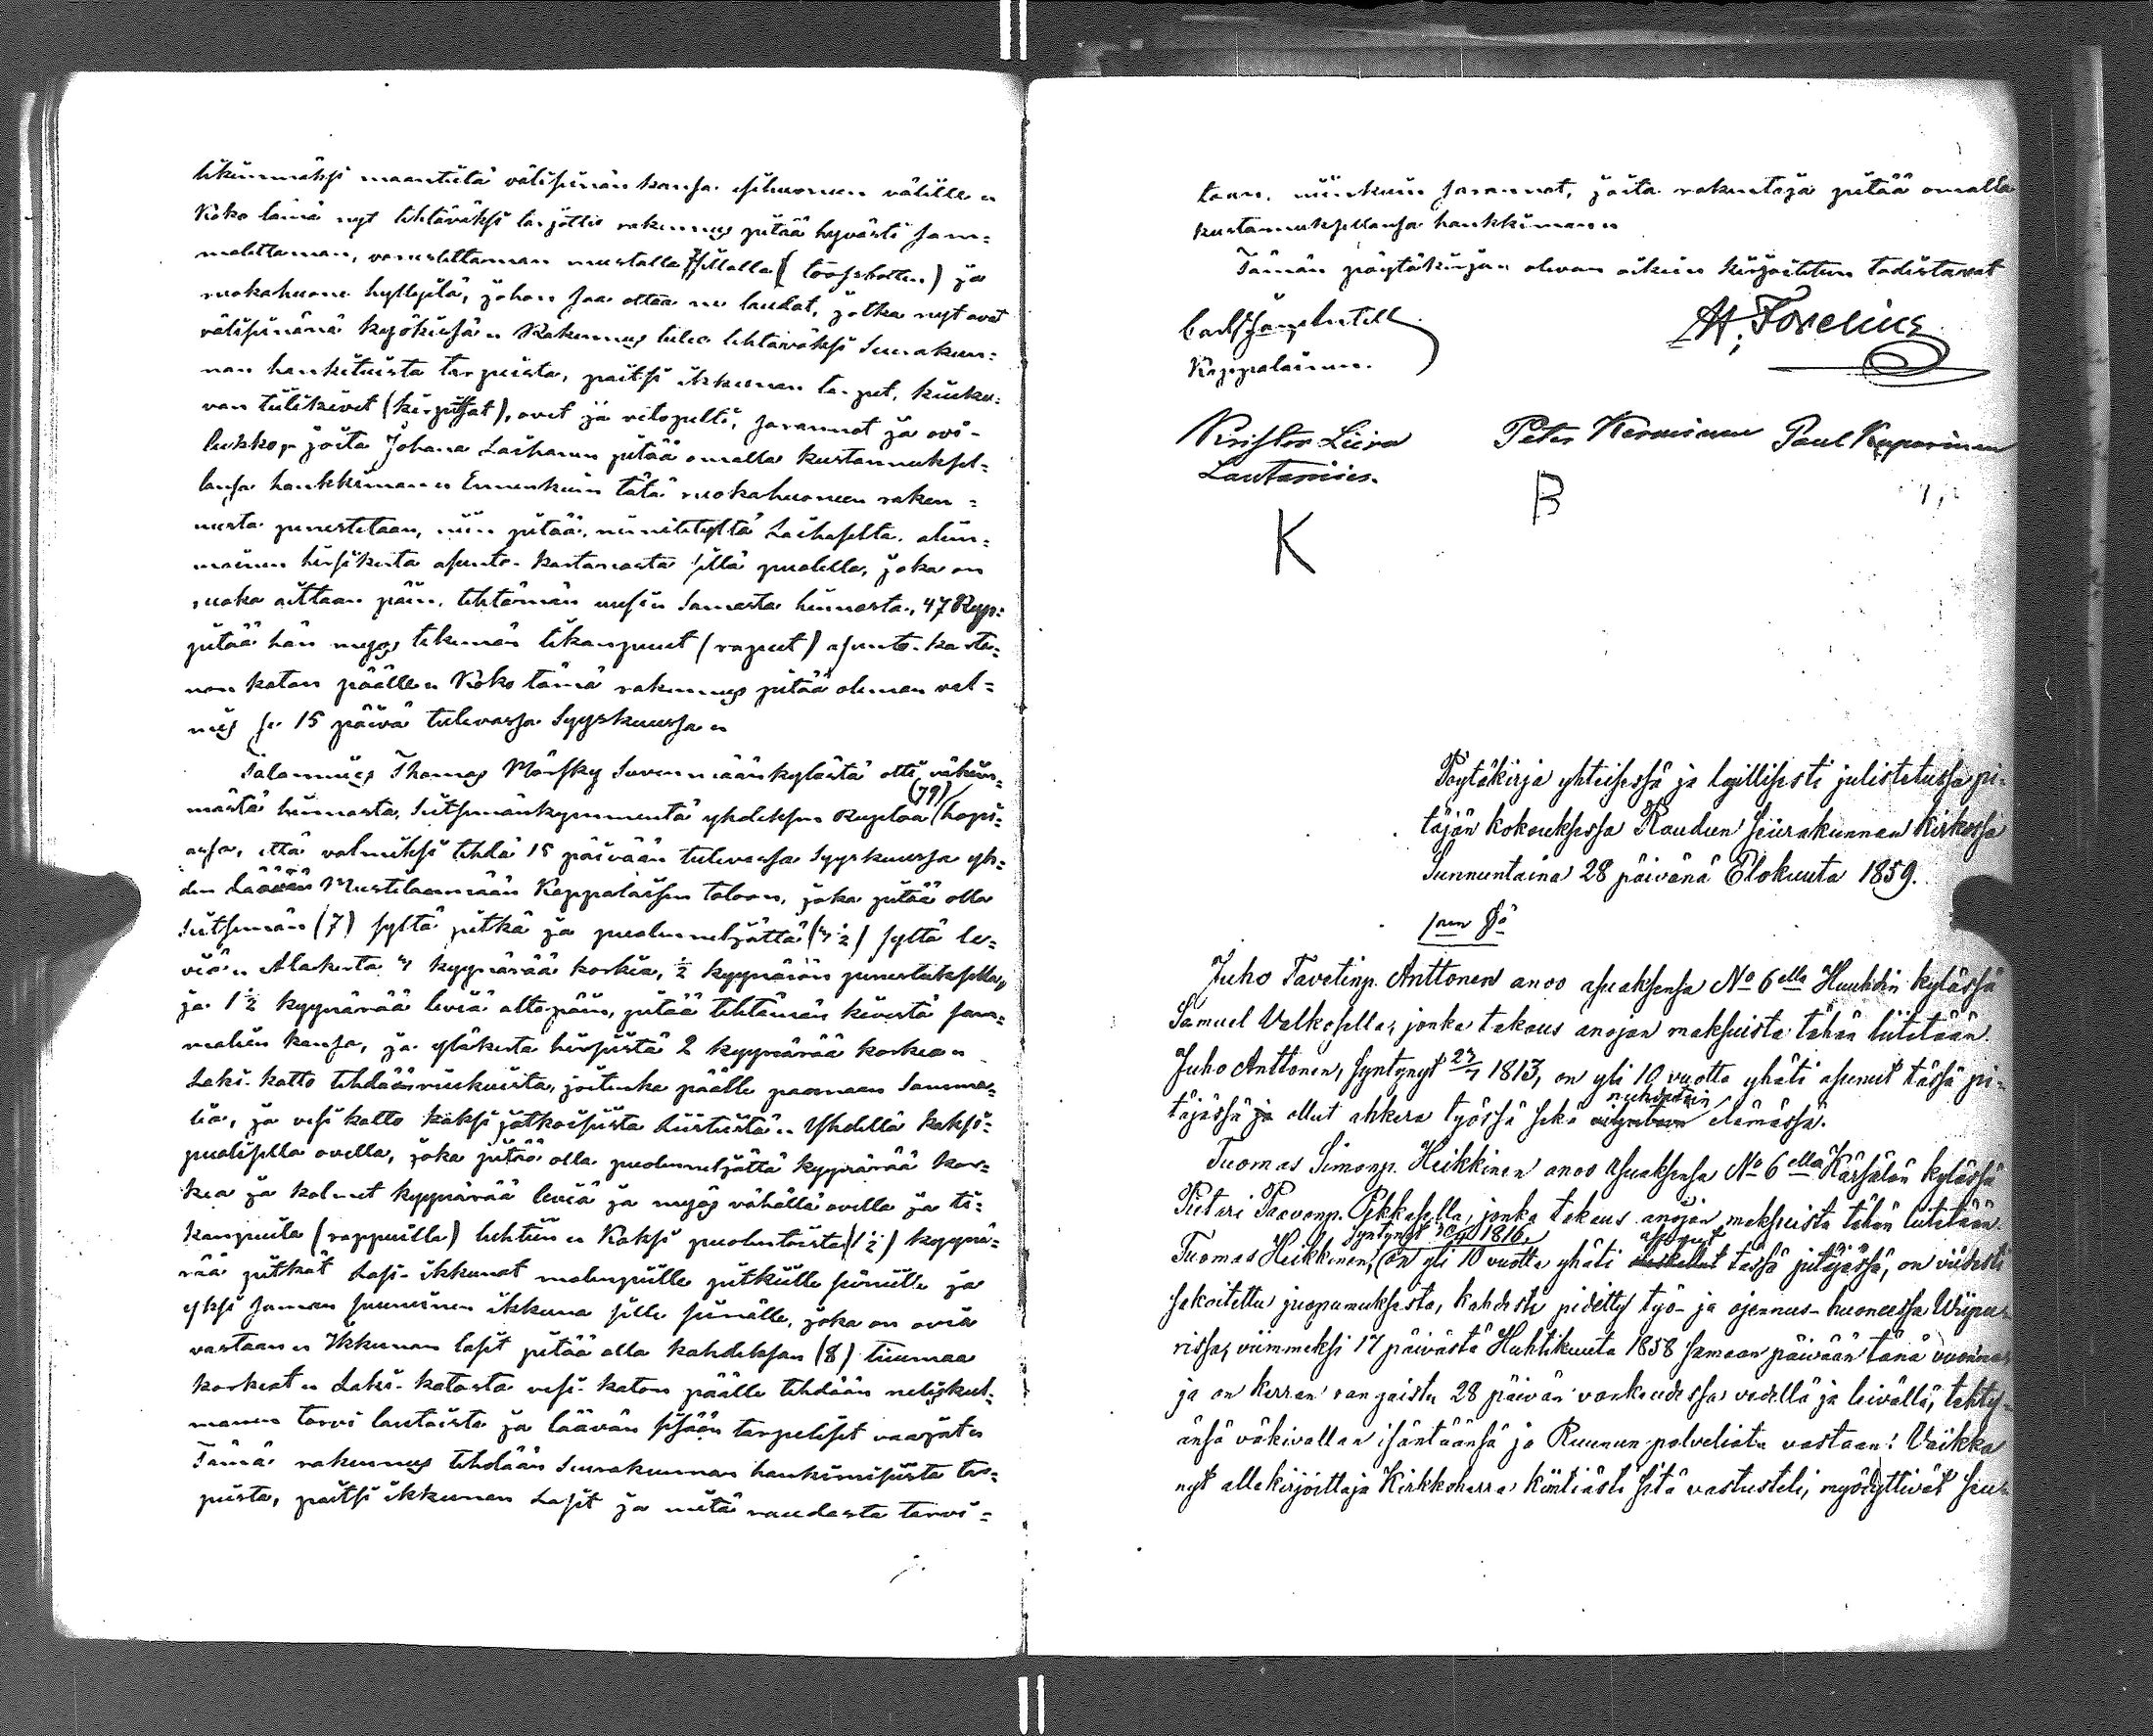 likimmäksi maantietä väliseinän kansa esihuoneen välille
Koko tämä nyt tehtäväksi tarjottu rakennus pitää hyvästi sam=
malettaman, varustettaman mustalla sillalla (trossbotten) ja
ruokahuone hyllyillä, johon saa ottaa ne laudat, jotka nyt ovat
väliseinänä kyökissä Rakennus tulee tehtäväksi Seurakun=
nan hankituista tarpeista, paitsi ikkunan tarpeet, kiuku=
van tiilikivet (kirpitsat), ovet ja vetopelti, sarannot ja ovi-
lukko, joita Johana Laihanen pitää omalla kustannuksel=
lansa hankkiman Ennenkuin tätä ruokahuoneen raken=
nusta perustetaan, niin pitää nimitetyltä Laihaselta alim=
mainen hirsikerta asunto-kartanosta sillä puolella, joka on
ruoka aittaan päin, tehtämän uusiin Samasta hinnasta, 47 Rup:
pitää hän myös tekemän tikanpuut (raput) asunto-karta=
non katon päälle Koko tämä rakennus pitää oleman val=
mis se 15 päivä tulevassa Syyskuussa
Talonmies Thomas Mönsky Suvenmäänkylästä otti vähim=
mästä hinnasta, Seitsemänkymmentä yhdeksän (79) Ruplaa hopi=
assa, että valmiiksi tehdä 15 päivään tulevassa Syyskuussa yh=
den Läävän Mustilanmään Kappalaisen taloon, joka pitää olla
Seitsemän (7) syltä pitkä ja puolenneljättä (3 ½) syltä le=
viä Alakerta 4 kyynärää korkia, ½ kyynärän perustuksella,
ja 1 ½ kyynärää leviä altapäin, pitää tehtämän kivestä sam=
malien kansa, ja yläkerta hirsistä 2 kyynärää korkea
Laki-katto tehdään riu'uista, joitenka päälle pannaan Samma=
lia, ja vesi katto kaksi jatkoisista Yhdellä kaksi=
puolisella ovella, joka pitää olla puolenneljättä kyynärää kor=
kea ja kolmet kyynärää leviä ja myös vähällä ovella ja ti=
kanpuilla (rappuilla) luhtiin Kaksi puolentoista (1 ½) kyynä=
rää pitkät Lasi-ikkunat molempiille pitkiille seiniille ja
yksi saman suuruinen ikkuna sille seinälle, joka on oviä
vastaan Ikkunan lasit pitää olla kahdeksan (8) tuumaa
korkeat Laki-katosta vesi-katon päälle tehdään neliskul=
mainen torvi laudoista ja läävän sisään tarpeliset vaajat
Tämä rakennus tehdään Seurakunnan hankimisista tar=
peista, paitsi ikkunan Lasit ja mitä raudasta tarvi=
taan, niinkuin sarannot, joita rakentaja pitää omalla
kustannuksellansa hankkiman
Tämän pöytäkirjan olevan oikein kirjoitetun todistavat
Kappalainen.
H. Forelius
Krister Liira Peter Kerminen Paul Kuparinen
Lautamies.
K B
Pöytäkirja yhteisessä ja laillisesti julistetussa pi=
täjän kokouksessa Raudun Seurakunnan Kirkossa
Sunnuntaina 28 päivänä Elokuuta 1859.
1:nen §ä
Juho Tavetinp. Anttonen anoo asuaksensa No 6ella Huuhdin kylässä
Samuel Valkosella, jonka takaus anojan maksuista tähän liitetään.
Juho Anttonen, syntynyt 24/7 1813, on yli 10 vuotta yhäti asunut tässä pi=
täjässä ja ollut ahkera työssä sekä nuhdetoin elämässä.
Tuomas Simonp. Heikkinen anoo asuaksensa No 6ella Kärsälän kylässä
Pietari Paavonp. Pekkasella, jonka takaus anojan maksuista tähän liitetään.
Tuomas Heikkinen, syntynyt 1816, on yli 10 vuotta yhäti asunut tässä pitäjässä, on viidesti
sakoitettu juopumuksesta, kahdesti pidetty työ- ja ojennus-huoneessa Wiipu=
rissa, viimmeksi 17 päivästä Huhtikuuta 1858 samaan päivään tänä vuonna,
ja on kerran rangaistu 28 päivän vankeudessa vedellä ja leivällä, tehty=
änsä väkivallan isäntäänsä ja Ruunun palveliata vastaan! Vaikka
nyt allekirjoittaja Kirkkoherra kiintiästi sitä vastusteli, myödyttivät Seu=